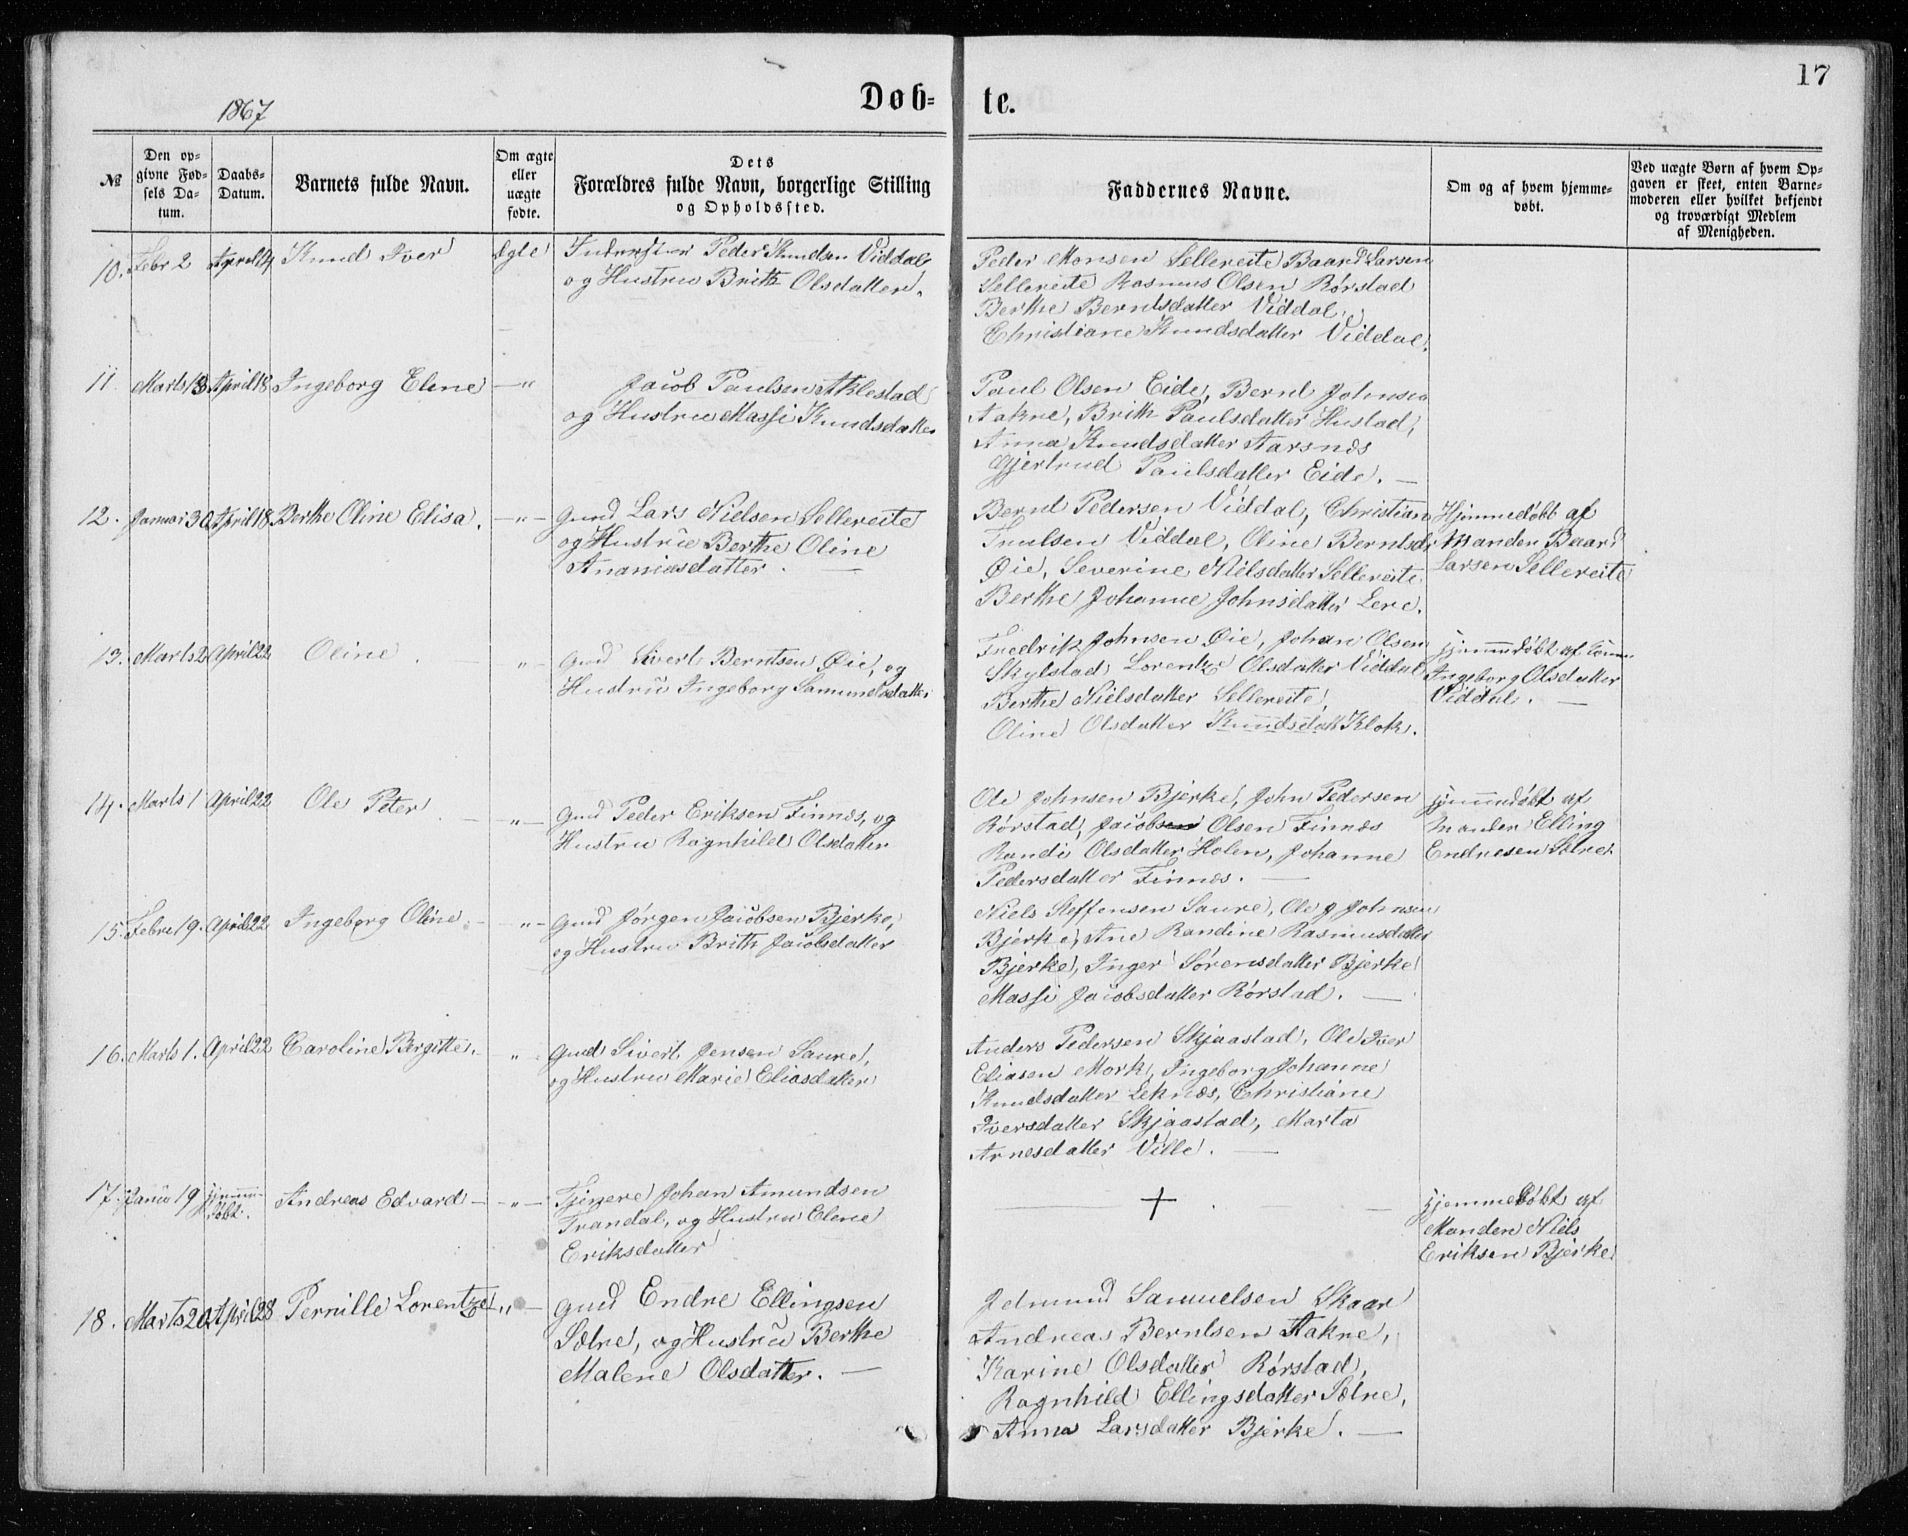 17
1867
Døb-
te.
№
Den op-
givne Fød-
sels Da-
tum.
Daabs-
Datum.
Barnets fulde Navn.
Om ægte
eller
uægte
fødte.
Dets
Forældres fulde Navn, borgerlige Stilling
og Opholdssted.
Faddernes Navne.
Om og af hvem hjemme-
døbt.
Ved uægte Børn af hvem Op-
gaven er skeet, enten Barne-
moderen eller hvilket bekjendt
og troværdigt Medlem
af Menigheden.
10. Febr 2 April 14 Knud Iver Ægte
Peder Knudsen Viddal
og Hustru Brith Olsdatter.
Peder Monsen Sellereite Baard Larsen
Sellereite Rasmus Olsen Rørstad
Berthe Berntsdatter Viddal,
Christiane Knudsdatter Viddal.
11. Marts 18 April 18 Ingeborg Eline —"
Jacob Paulsen Aklestad
og Hustru Massi Knudsdatter
Paul Olsen Eide, Bernt Johnsen
Aakre, Brith Paulsdatter Hustad,
Anna Knudsdatter Aarsnes
Gjertrud Paulsdatter Eide. —
12. Januar 30 April 18 Berthe Oline Elisa. —"—
Gmd Lars Nielsen Sellereite
og Hustru Berthe Oline
Ananiasdatter. —
Bernt Pedersen Viddal, Christian
Truulsen Viddal, Oline Berntsdr
Øie, Severine Nielsdatter Sellereite
Berthe Johanne Johnsdatter Lere.
Hjemmedøbt af
Manden Baard
Larsen Sellereite
13. Marts 2 April 22 Oline. — "—
Gmd Sivert Berntsen Øie, og
Hustru Ingeborg Samuelsdatter
Fredrik Johnsen Øie, Johan Olsen
Skylstad, Lorentze Olsdatter Viddal
Berthe Nielsdatter Sellereite,
Oline Olsdatter Knudsdatt Klok.
hjemmedøbt af
Ingeborg Olsdatter
Viddal. —
14. Marts 1 April 22 Ole Peter. — "—
Gmd Peder Eriksen Finnes, og
Hustru Ragnhild Olsdatter
Ole Johnsen Bjerke, John Pedersen
Rørstad, Jacobsen Olsen Finnes
Randi Olsdatter Holen, Johanne
Pedersdatter Finnes. —
hjemmedøbt af
Manden Elling
Endresen Sætre
15. Febru 19. April 22 Ingeborg Oline. — "—
Gmd Jørgen Jacobsen Bjerke,
og Hustru Brith Jacobsdatter
Niels Steffensen Saure, Ole J Johnsen
Bjerke, Ane Randine Rasmusdatter
Bjerke, Inger Sørensdatter Bjerke
Massi Jacobsdatter Rørstad. —
16. Marts 1. April 22 Caroline Bergitte. "
Gmd Sivert Jensen Saure,
og Hustru Marie Eliasdatter
Anders Pedersen Skjaastad, Ole Iver
Eliasen Mork, Ingeborg Johanne
Knudsdatter Leknes, Christiane
Iversdatter Skjaastad, Marta
Arnesdatter Ville. —
17. Janu 19 hjemme-
døbt. Andreas Edvard — "—
Tjenere Johan Amundsen
Trandal, og Hustru Elene
Eriksdatter
— + —
hjemmedøbt af
Manden Niels
Eriksen Bjerke
18. Marts 20 April 28 Pernille Lorentze —"—
Gmd Endre Ellingsen
Sætre, og Hustru Berthe
Malene Olsdatter. —
Edmund Samuelsen Skaar
Andreas Berntsen Aakre,
Karine Olsdatter Rørstad,
Ragnhild Ellingsdatter Sætre,
Anna Larsdatter Bjerke. —